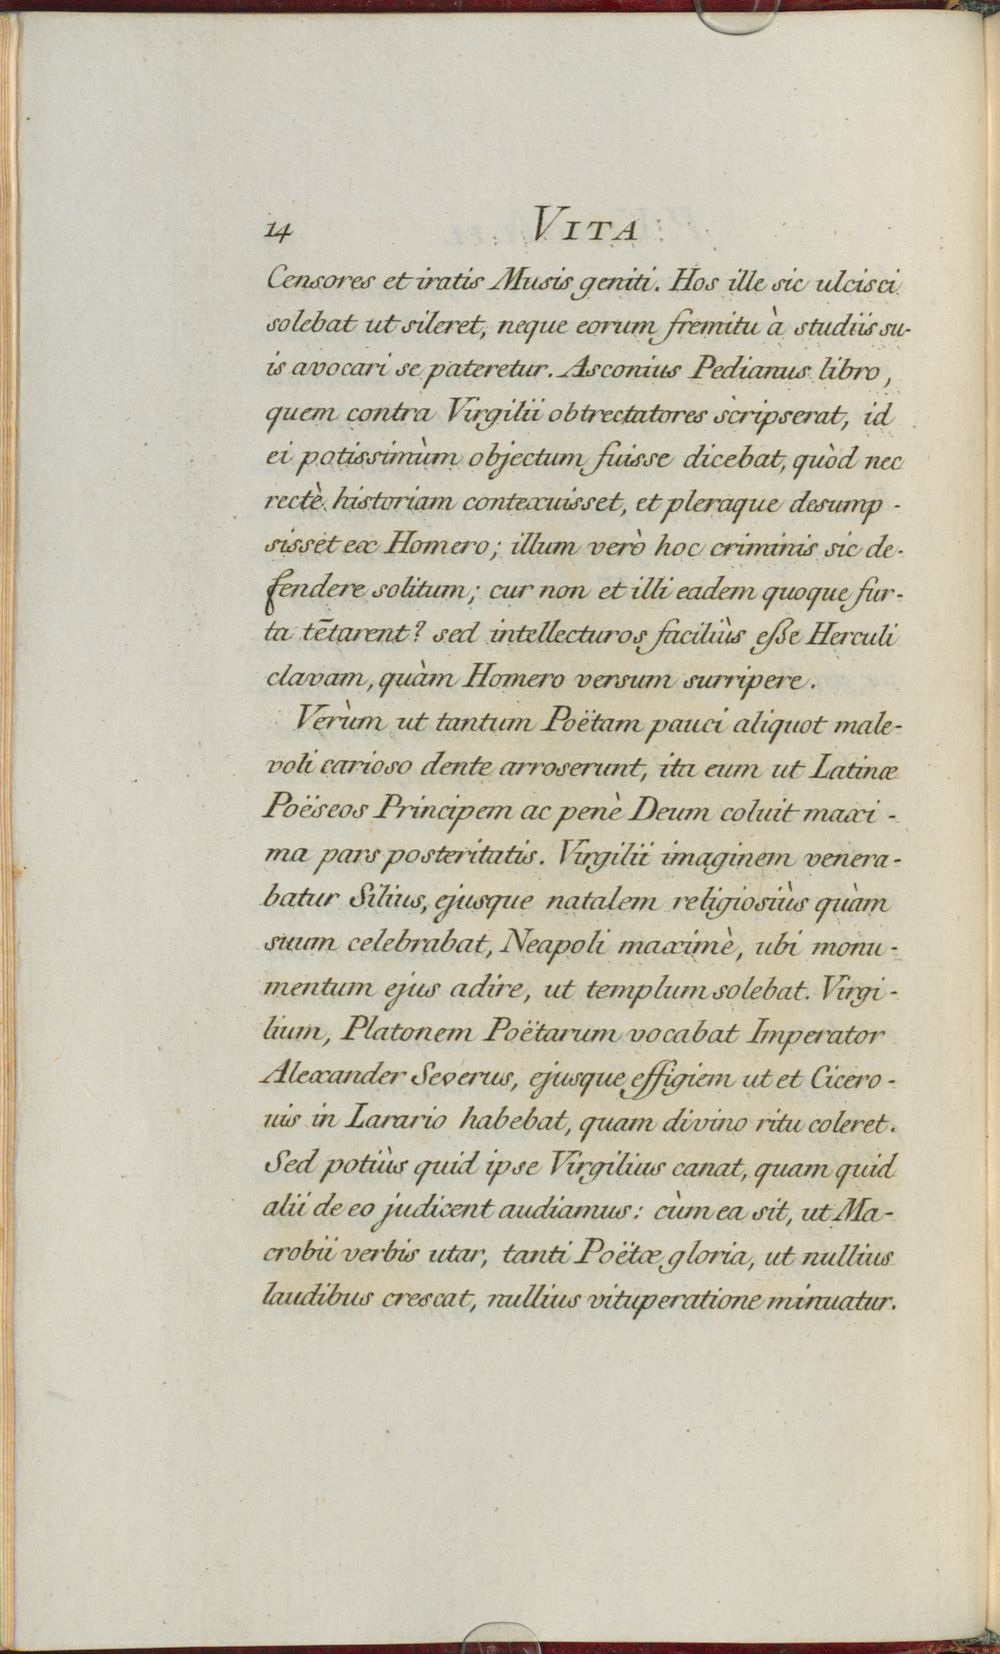 14 VITA
Censores et iratis Musis geniti. Hos ille sic ulcisci
solebat ut sileret, neque eorum fremitu à studiis su-
is avocari se pateretur. Asconius Pedianus libro,
quem contra Virgilii obtrectatores scripserat, id
ei potissimùm objectum fuisse dicebat, quòd nec
rectè historiam contexuisset, et pleraque desump-
sisset ex Homero; illum verò hoc criminis sic de-
fendere solitum; cur non et illi eadem quoque fur-
ta tētarent? sed intellecturos faciliùs eße Herculi
clavam, quàm Homero versum surripere.
Verùm ut tantum Poëtam pauci aliquot male-
voli carioso dente arroserunt, ita eum ut Latinæ
Poëseos Principem ac penè Deum coluit maxi-
ma pars posteritatis. Virgilii imaginem venera-
batur Silius, ejusque natalem religiosiùs quàm
suum celebrabat, Neapoli maximè, ubi monu-
mentum ejus adire, ut templum solebat. Virgi-
lium, Platonem Poëtarum vocabat Imperator
Alexander Severus, ejusque effigiem ut et Cicero-
nis in Larario habebat, quam divino ritu coleret.
Sed potiùs quid ipse Virgilius canat, quam quid
alii de eo judicent audiamus: cùm ea sit, ut Ma-
crobii verbis utar, tanti Poëtæ gloria, ut nullius
laudibus crescat, nullius vituperatione minuatur.